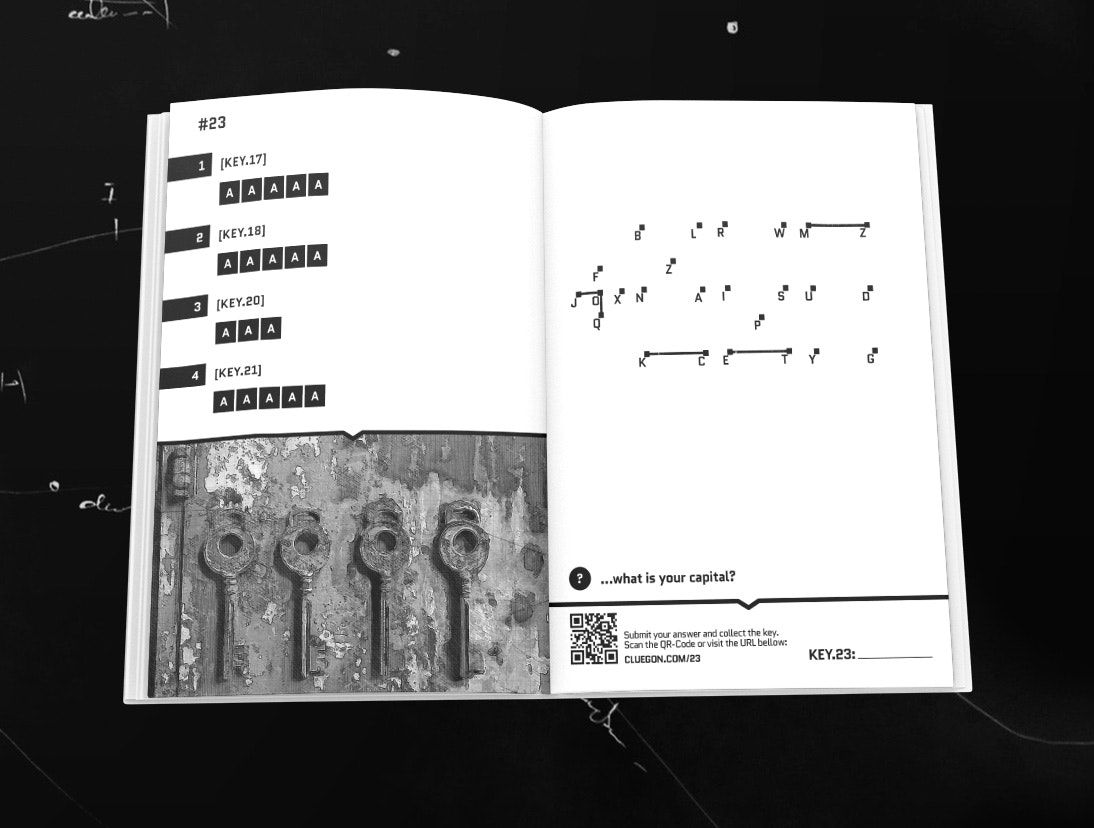 #23
1 [KEY.17]
A A A A A
2 [KEY.18]
A A A A A
3 [KEY.20]
A A A
4 [KEY.21]
A A A A A
B L R W M Z
F Z
J O X N A I S U D
Q P
K C E T Y G
? ...what is your capital?
Submit your answer and collect the key.
Scan the QR-Code or visit the URL bellow:
CLUEGON.COM/23
KEY.23: